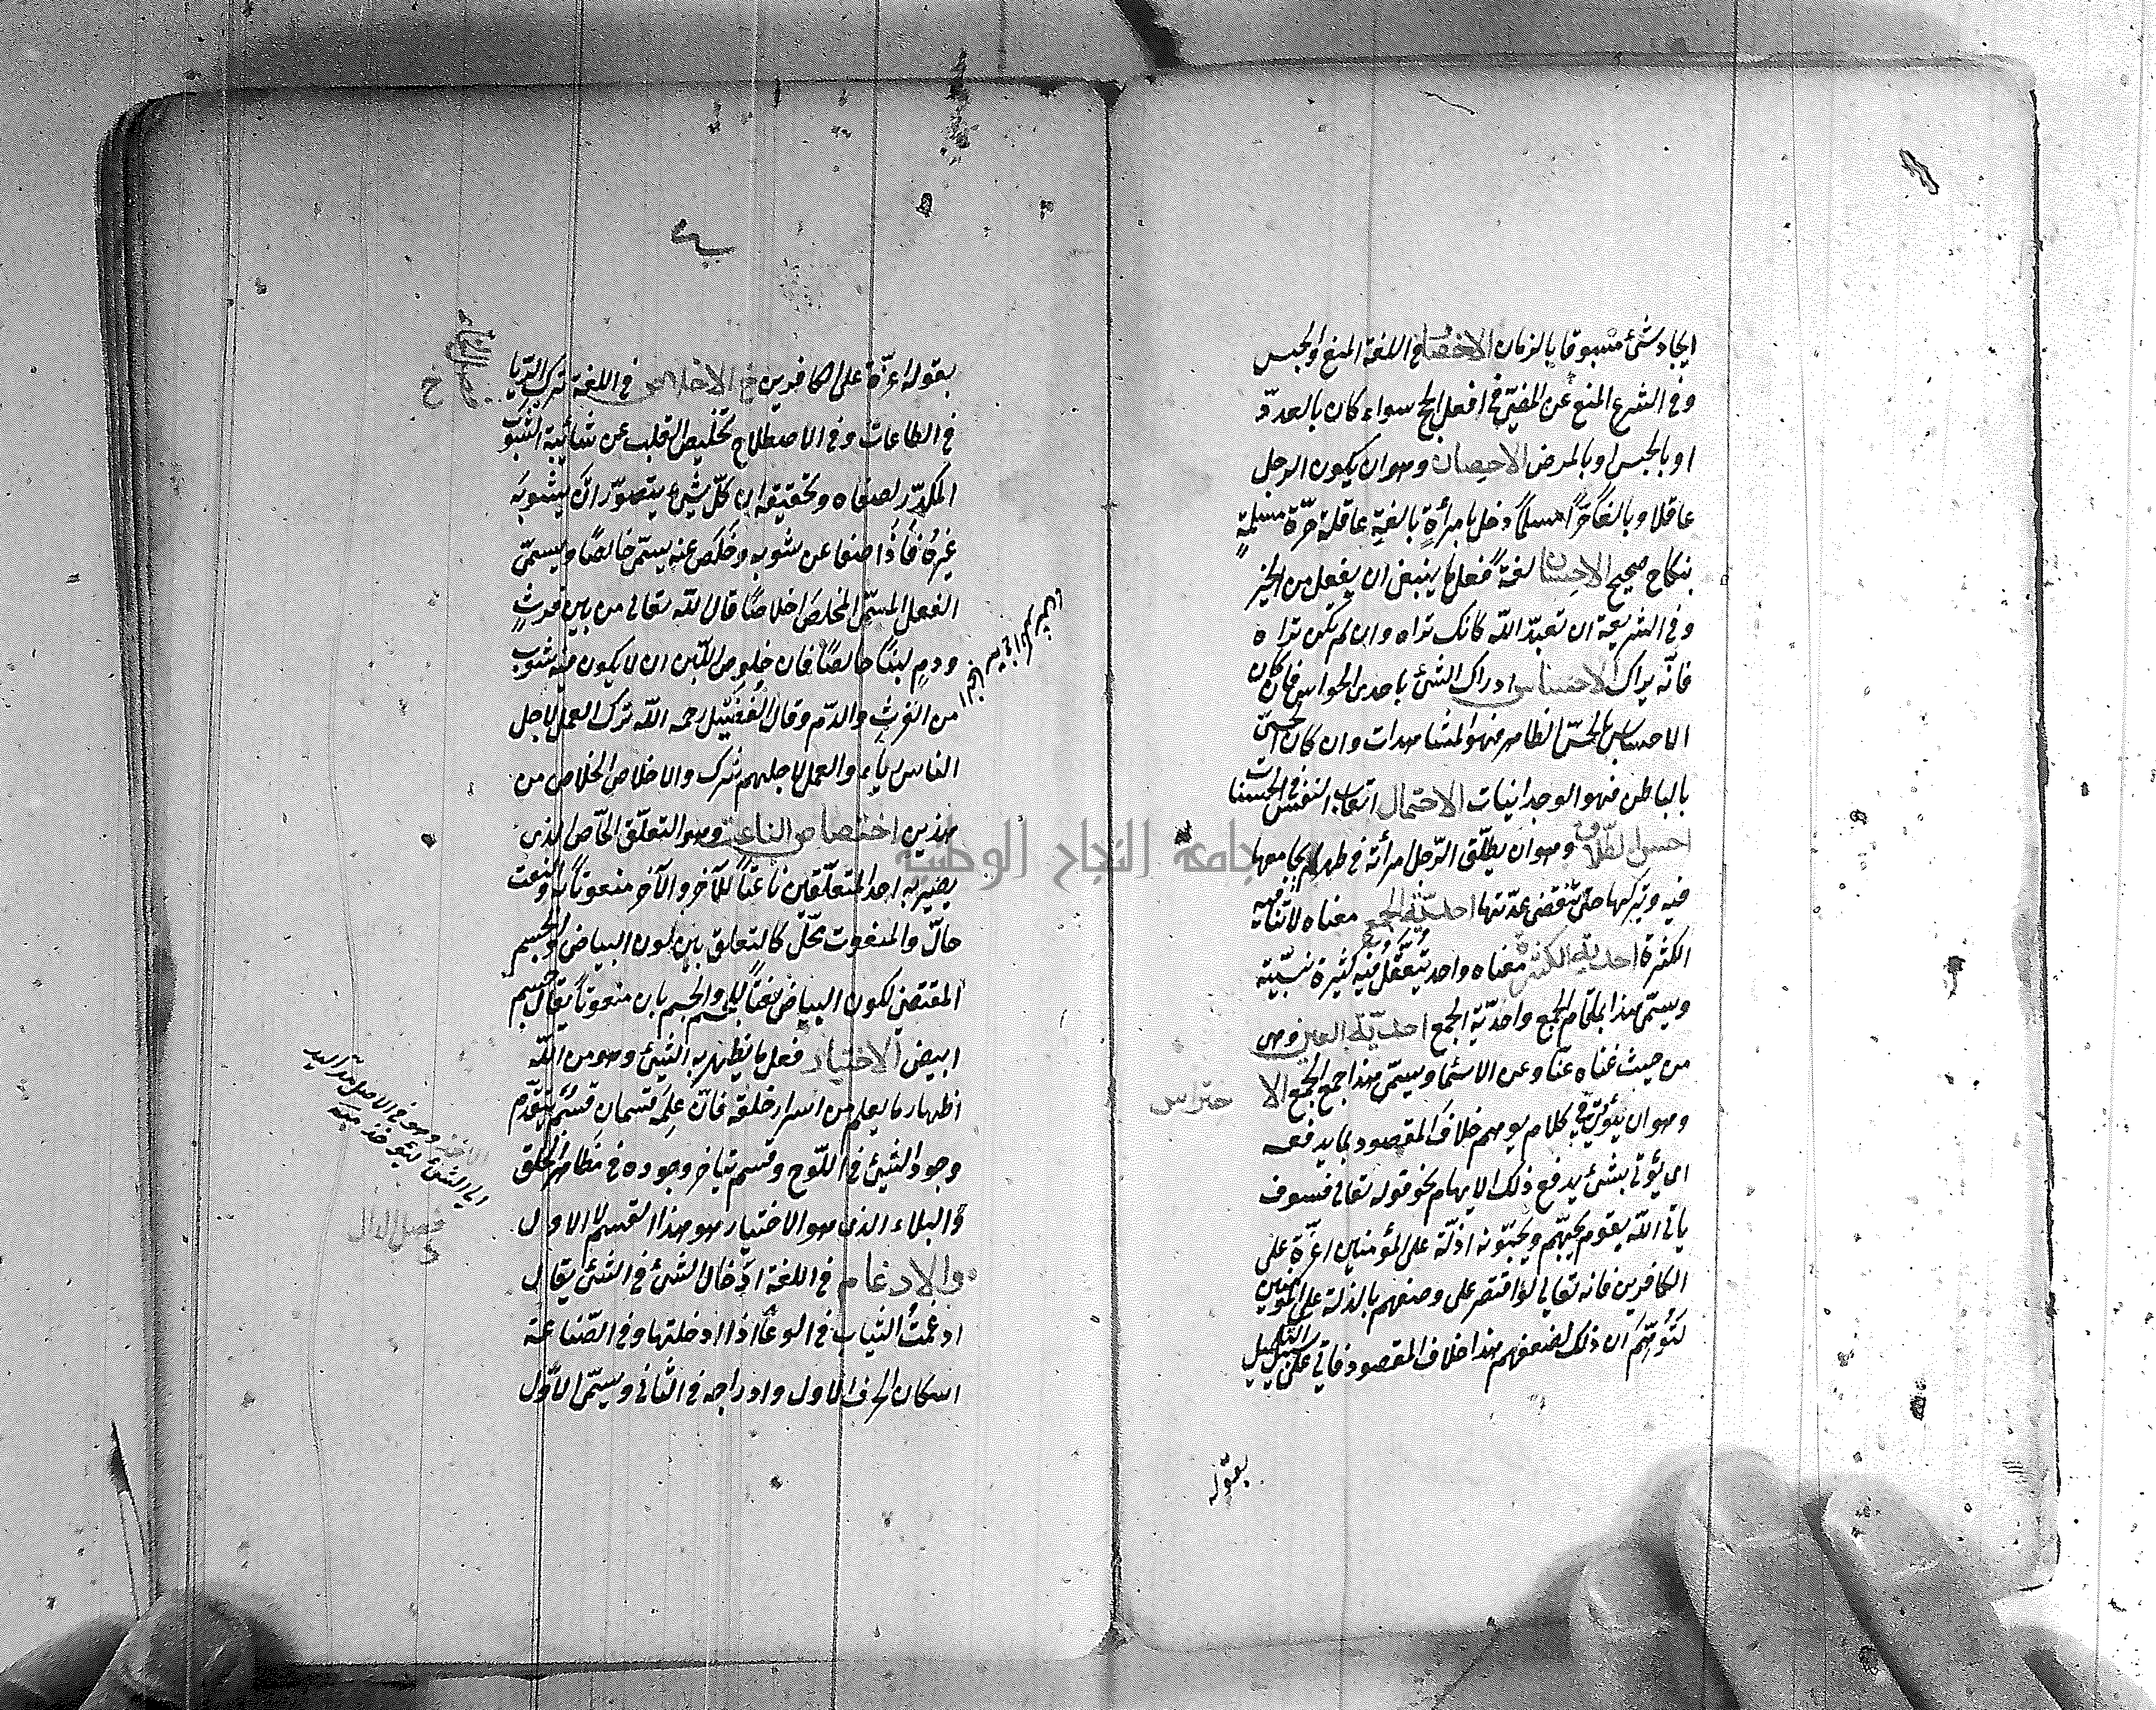 ايجاد شئ مسبوقا بالزمان الاحصار في اللغة المنع والحبس
وفي الشرع المنع عن المضي في افعل الحج سواء كان بالعدوّ
او بالحبس او بالمرض الاحصان وهو ان يكون الرجل
عاقلا وبالغًا حرًّا مسلمًا دخل بامرأةٍ بالغةٍ عاقلة حرّة مسلمةٍ
بنكاح صحيح الاحسان لغةً فعل ما ينبغي ان يفعل من الخير
وفي الشريعة ان تعبد اللّه كانك تراه وان لم تكن تراه
فانّه يراك الاحساس ادراك الشئ باحدى الحواس فان كان
الاحساس للحسّ الظاهر فهو المشاهدات وان كان للحسّ
بالباطن فهو الوجدانيات الاحتمال اتعاب النفس في الحسنات
احسن الطلاق وهو ان يطلّق الرّجل امرأته في طهر لم يجامعها
فيه وتركها حتى تنقضي عدّتها احديّة الجمع معناه لا تنافيه
الكثرة احدية الكثرة معناه واحد يتعقّل فيه كثيرة نسبيّة
ويسمّى هذا بمقام الجمع واحديّة الجمع احديّة العين وهى
من حيث غناه عنّا وعن الاسمأ ويسمّى هذا جمع الجمع الا حتراس
وهو ان يؤتى في كلام يوهم خلاف المقصود بما يدفعه
اي يؤتى بشئ يدفع ذلك الايهام نحو قوله تعالى فسوف
ياتى اللّه بقوم يحبّهم ويحبّونه اذلّة على المؤمنين اعزّة على
الكافرين فانه تعالى لو اقتصر على وصفهم بالذلة على المؤمنين
لتوُهِّمَ انّ ذلك لضعفهم هذا خلاف المقصود فاتى على سبيل التكميل
بقوله
بقوله اعزّة على الكافرين الاخلاص في اللغة ترك الرّيا
في الطاعات وفي الاصطلاح تخليص القلب عن شائبة الشوب
المكدّر لصفاه وتحقيقه ان كلّ شئ يتصوّر ان يشوبه
غيرُه فاذا صفا عن شوبه وخلص عنه يسمّى خالصًا ويسمّى
الفعل المسمّى المخلص اخلاصًا قال اللّه تعالى من بين فرثٍ
ودمٍ لبنًا خالصًا فان خلوص اللّبن ان لا يكون فيه شوب
من الفرث والدّم وقال الفضيل رحمه اللّه ترك العمل لاجل
الناس رياء والعمل لاجلهم شرك والاخلاص الخلاص من
هذين اختصاص الناعت وهو التعلّق الخاص الذى
يصير به احد المتعلّقين ناعتًا للآخر والآخر منعوتًا به والنعت
حالّ والمنعوت محلّ كالتعلق بين لون البياض والجسم
المقتضى لكون البياض نعتًا للجسم والجسم بان منعوتًا يقال جسم
ابيض الاختيار فعل ما يظهر به الشئ وهو من اللّه
اظهار ما يعلم من اسرار خلقه فانّ علمَه قسمان قسمٌ يتقدّم
وجود الشئ في اللّوح وقسم يتاخر وجوده في مظاهر الخلق
والبلاء الذى هو الاختيار هو هذا القسم لا الاول
والادغام في اللغة ادخال الشئ في الشئ يقال
ادغمتُ الثياب في الوعأ اذا ادخلتها وفي الصّناعة
اسكان الحرف الاول وادراجه في الثاني ويسمّى الاوّل
وهو في الاصل مدّ اليد
الى الشئ ليؤخذ منه
فصل الدال
جامعة النجاح الوطنية